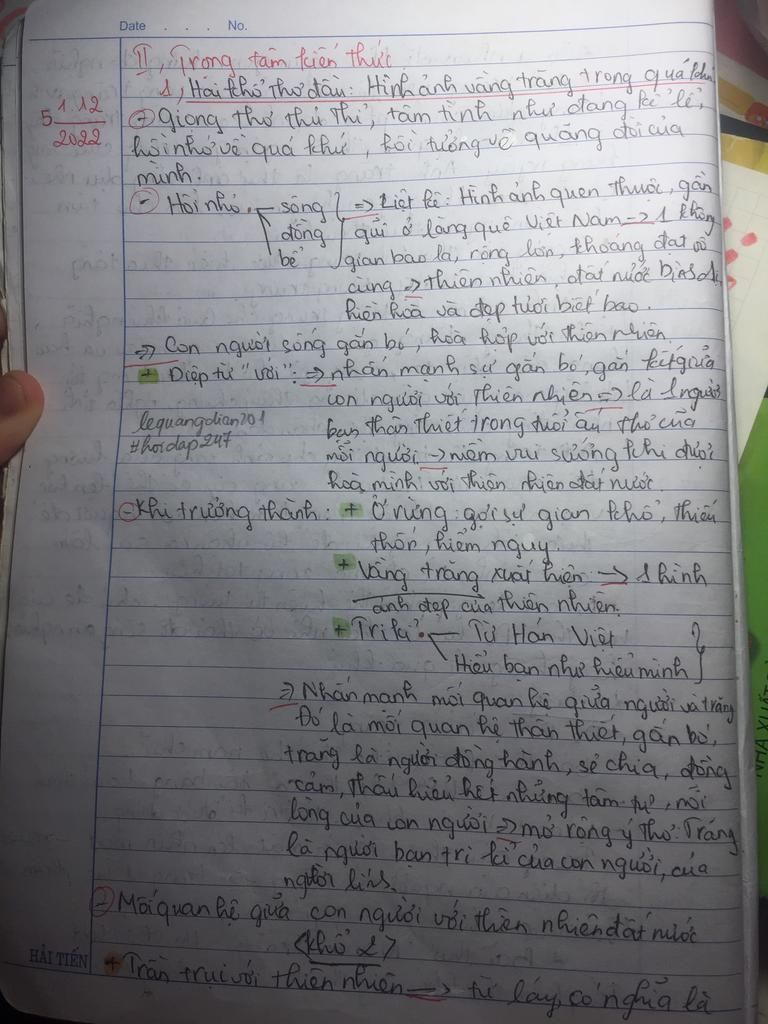 Date . . . No.
II, Trọng tâm kiến thức
1, Hai khổ thơ đầu: Hình ảnh vầng trăng trong quá khứ
5 1.12
2022
- Giọng thơ thủ thỉ, tâm tình như đang kể lể,
hồi nhớ về quá khứ, hồi tưởng về quãng đời của
mình.
- Hồi nhỏ - sông => Liệt kê: Hình ảnh quen thuộc, gần
đồng gũi ở làng quê Việt Nam -> 1 không
bể gian bao la, rộng lớn, khoáng đạt vô
cùng => thiên nhiên, đất nước bình dị,
hiền hoà và đẹp tươi biết bao.
=> Con người sống gắn bó, hoà hợp với thiên nhiên.
+ Điệp từ "với": -> nhấn mạnh sự gắn bó, gắn kết giữa
con người với thiên nhiên => là 1 người
lequangdian201
bạn thân thiết trong tuổi ấu thơ của
#hoidap247
mỗi người -> niềm vui sướng khi được
hoà mình với thiên nhiên đất nước.
- Khi trưởng thành: + Ở rừng: gợi sự gian khổ, thiếu
thốn, hiểm nguy.
+ Vầng trăng xuất hiện -> 1 hình
ảnh đẹp của thiên nhiên.
+ Tri kỉ: - Từ Hán Việt
Hiểu bạn như hiểu mình
=> Nhấn mạnh mối quan hệ giữa người và trăng
Đó là mối quan hệ thân thiết, gắn bó,
trăng là người đồng hành, sẻ chia, đồng
cảm, thấu hiểu hết những tâm tư, nỗi
lòng của con người => mở rộng ý thơ: Trăng
là người bạn tri kỉ của con người, của
người lính.
- Mối quan hệ giữa con người với thiên nhiên đất nước
<khổ 2>
HẢI TIẾN
+ Trần trụi với thiên nhiên -> từ láy, có nghĩa là
NHÀ XUẤT